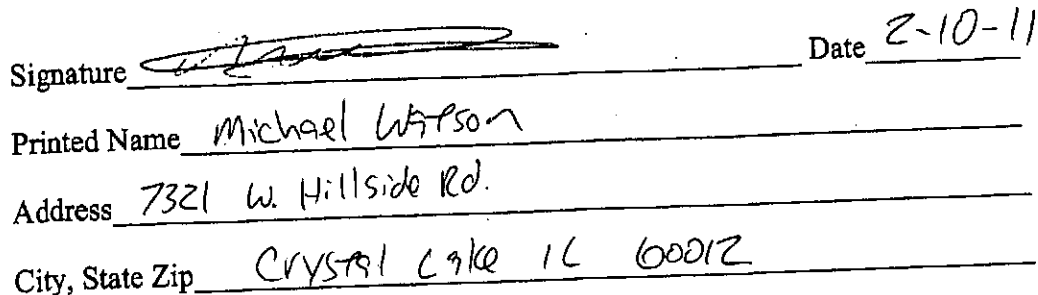 Signature Date 2-10-11
Printed Name Michael Watson
Address 7321 W. Hillside Rd.
City, State Zip Crystal Lake IL 60012